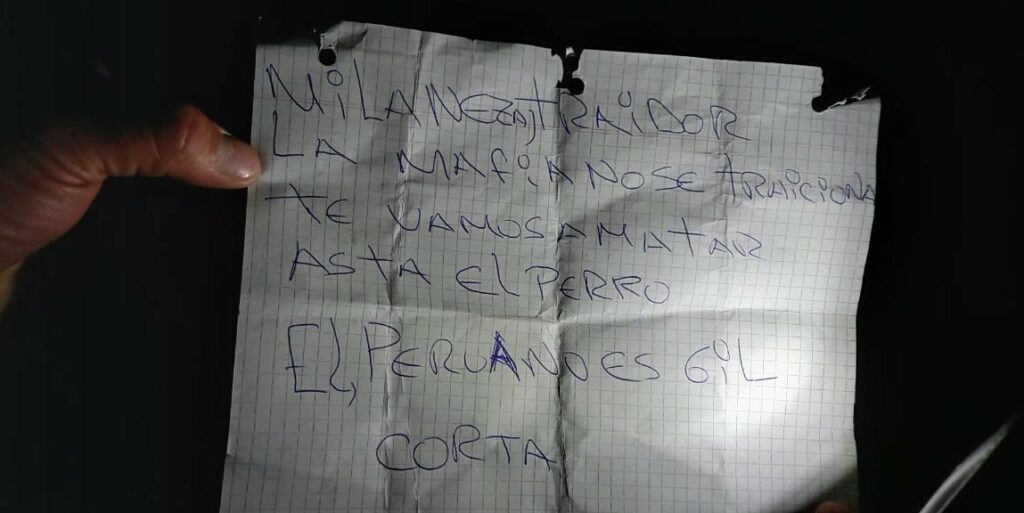 MiLANEZA, TRAiDOR
LA MAFiA NO SE TRAiCIONA
TE VAMOS A MATAR
ASTA El PERRO
El, PERUANO ES GiL
CORTA